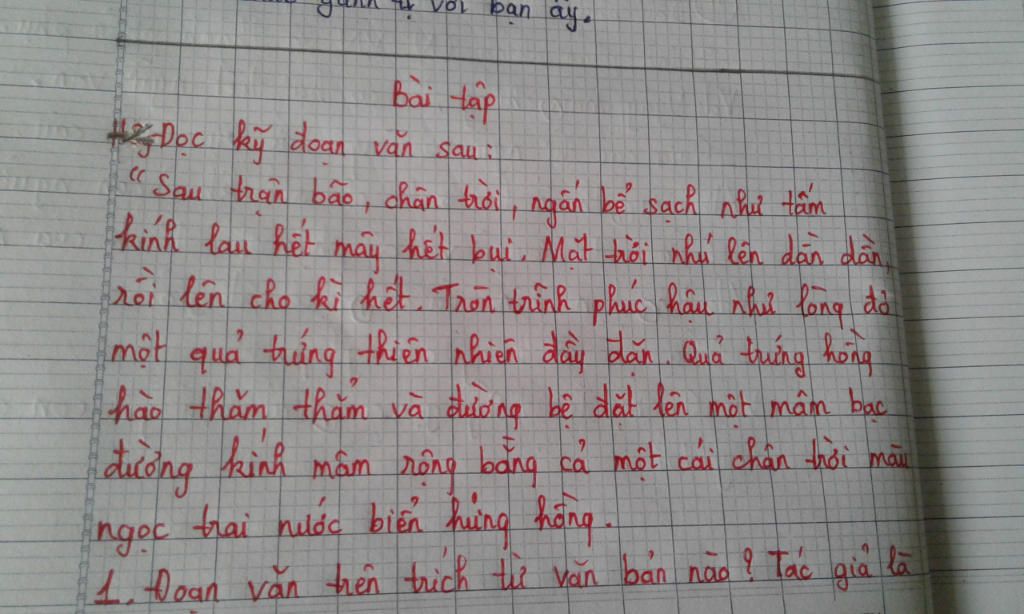 gánh tị với bạn ấy.
Bài tập
Đọc kỹ đoạn văn sau:
“Sau trận bão, chân trời, ngấn bể sạch như tấm
kính lau hết mây hết bụi. Mặt trời nhú lên dần dần,
rồi lên cho kì hết. Tròn trĩnh phúc hậu như lòng đỏ
một quả trứng thiên nhiên đầy dặn. Quả trứng hồng
hào thăm thẳm và đường bệ đặt lên một mâm bạc
đường kính mâm rộng bằng cả một cái chân trời màu
ngọc trai nước biển hửng hồng.
1. Đoạn văn trên trích từ văn bản nào? Tác giả là